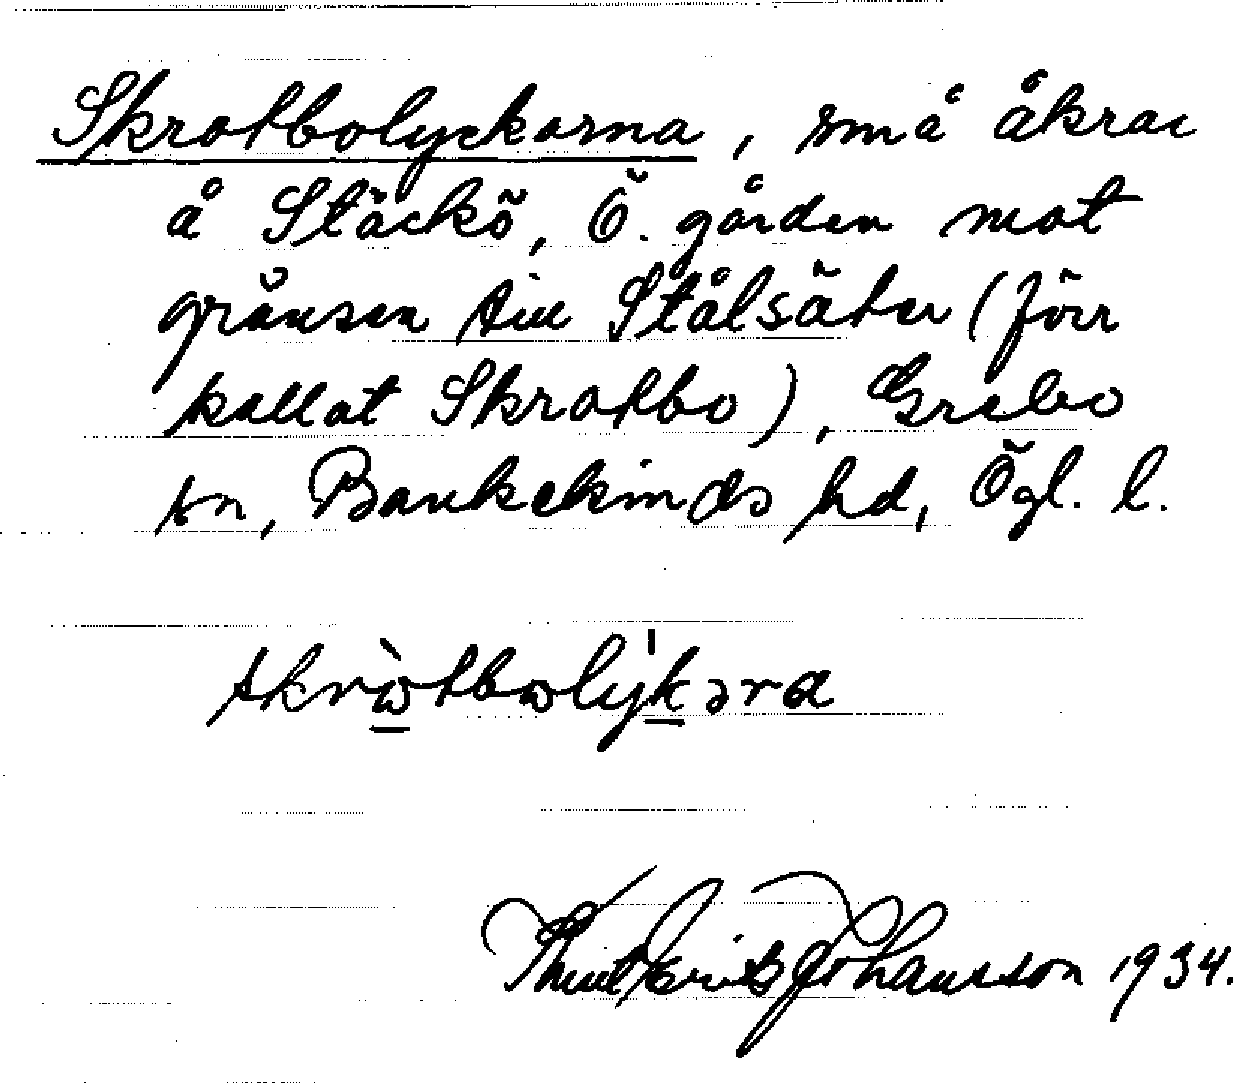 Skrotbolyckorna, små åkrar
å Stäckö, Ö. gården mot
gränsen till Stålsäter (förr
kallat Skrotbo), Grebo
sn, Bankekinds hd, Ögl. l.
skròtbolykəra
Johansson 1934.